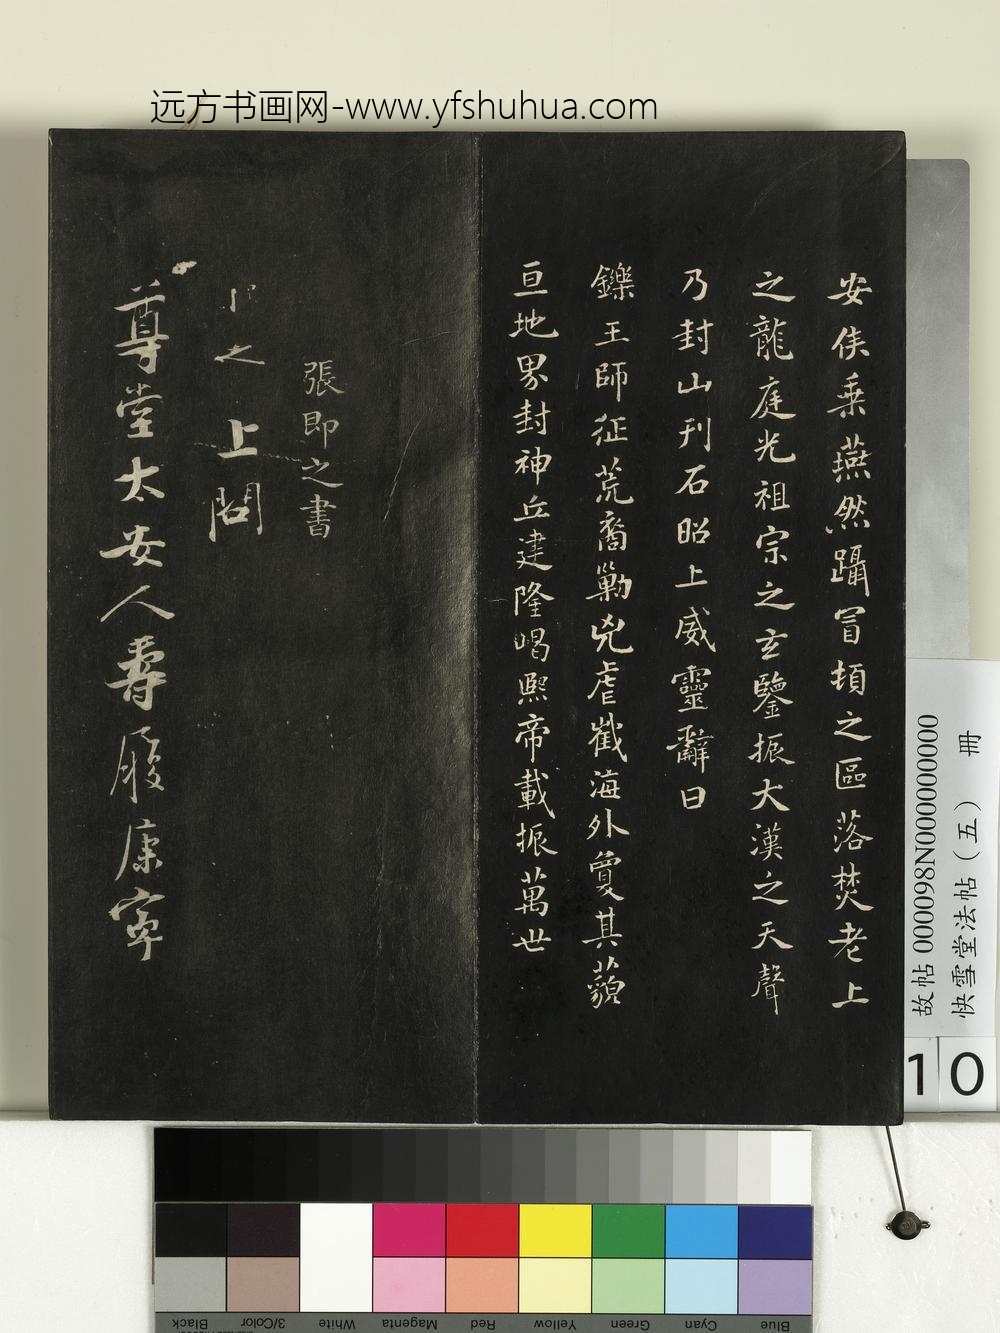 远方书画网-www.yfshuhua.com
安侯乗燕然躡冒頓之區落焚老上
之龍庭光祖宗之玄鑒振大漢之天聲
乃封山刊石昭上威靈辭曰
鑠王師征荒裔勦兇虐截海外敻其藐
亘地界封神丘建隆嵑熙帝載振萬世
張即之書
之上問
尊堂太安人壽履康寧
故帖 000098N000000000
快雪堂法帖（五） 冊
10
Black 3/Color White Magenta Red Yellow Green Cyan Blue